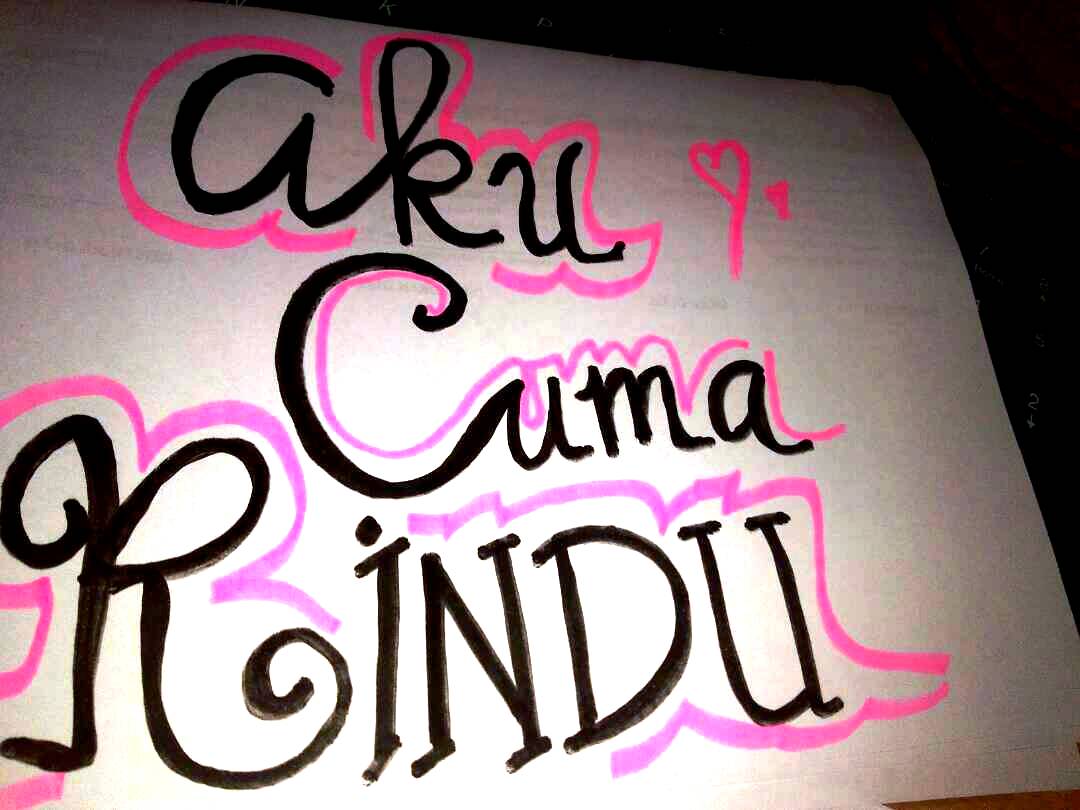 aku
Cuma
RiNDU